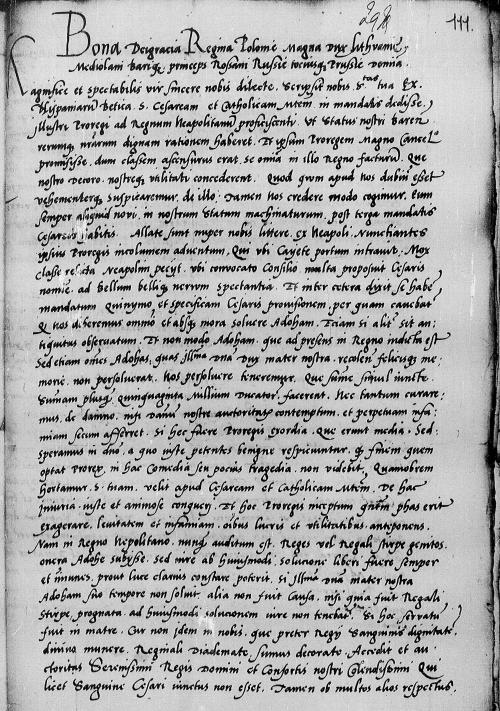 111.
Bona Dei gracia Regina Polonie Magna Dux Lithvanie,
Mediolani Bariq princeps Rossani Russie tociusq Prussie domina.
agnifice et spectabilis vir sincere nobis dilecte. Scripsit nobis S.tas tua Ex
Hispaniarū Betica. S. Cesaream et Catholicam Mtem. in mandatis dedisse,
illustre Proregi ad Regnum Neapolitanū proficiscenti. Ut Status nostri Baren
rerumq nrarum dignam rationem haberet. Et ipsum Proregem Magno Cancelo
promisisse, dum classem ascensurus erat. se omia in illo Regno facturū. Que
nostro Decoro. nostreq utilitati concederent. Quod qvm apud nos dubiū esset
vehementerq suspicaremur, de illo. Tamen nos credere modo cogimur. Eum
semper aliquid novi, in nostrum Statum machinaturum. post terga mandatis
Cesareis habitis. Allate sunt nuper nobis littere. ex Neapoli. Nunciantes
ipsius Proregis incolumem adventum, Qui ubi Cayete portum intravit. Mox
classe relicta Neapolim petyt. ubi convocato Consilio multa proposuit Cesaris
nomīe. ad Bellum belliq nervum spectantia. Et inter cetera dixit se habē
mandatum Quinymo et specificam Cesaris provisionem, per quam cavebat
Q nos differemus omnīo et absq mora solvere Adoham. Etiam si alitr sit an
tiquitus observatum. Et non modo Adoham. que ad presens in Regno indicta est
Sed etiam omēs Adohas, quas illma Dna Dux mater nostra. recolen felicisq me
morie. non persolverat. Nos persolvere teneremur. Que sūme simul iuncte.
Sumam plusq Quinquaginta Millium Ducator. facerent. Nec tantum curare
mus, de damno. nisi damū nostre autoritatis contemptum. et perpetuam infa
miam secum afferret. Si hec fuere Proregis exordia. Que erunt media. Sed
speramus in dno. a quo iuste petentes benigne respiciuntur. q finem quem
optat Prorex, in hac Comedia seu pocius tragedia. non videbit, Quamobrem
hortamur. S. tuam. velit apud Cesaream et Catholicam Mtem. De hac
iniuria. iuste et animose conquery. Et hoc Proregis inceptum qntm phas erit
exagerare. levitatem et infamiam. oībus lucris et utilitatibus. anteponens.
Nam in Regno Nepolitano. nunq auditum est. Reges vel Regali stirpe genitos.
onera Adohe subysse. Sed iure ab huiusmodi. solucione liberi fuere semper
et imunes, prout luce clarius constare poterit. Si illma Dna mater nostra
Adoham suo tempore non solvit. alia non fuit Causa. nisi quia fuit Regali
Stirpe, prognata. ad huiusmodi solucionem iure non tenebat. Si hoc servatū
fuit in matre. Cur non idem in nobis. que preter Regy Sanguinis dignitatē,
divino munere. Reginali Diademate, sumus decorate. Accedit et au
ctoritas Serenissimi Regis Domini et Consortis nostri Colendissimi Qui
licet Sanguine Cesari iunctus non esset. Tamen ob multos alios respectus.